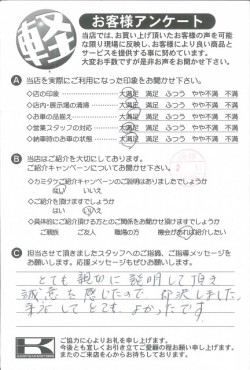 軽
お客様アンケート
当店では、お買い上げ頂いたお客様の声を可能
な限り現場に反映し、お客様により良い商品と
サービスを提供する事に努めています。
大変お手数ですが是非お声をお聞かせ下さい。
A 当店を実際にご利用になった印象をお聞かせ下さい。
◇店の印象 大満足 満足 ふつう やや不満 不満
◇店内・展示場の清掃 大満足 満足 ふつう やや不満 不満
◇お車の品揃え 大満足 満足 ふつう やや不満 不満
◇営業スタッフの対応 大満足 満足 ふつう やや不満 不満
◇納車時のお車の状態 大満足 満足 ふつう やや不満 不満
B 当店はご紹介を大切にしております。
ご紹介キャンペーンについてお聞かせ下さい。
◇カミタツご紹介キャンペーンのご説明はありましたでしょうか
はい いいえ
◇ご紹介を頂けますでしょうか
はい いいえ
◇具体的にご紹介頂ける方とのご関係をお聞かせ頂けますでしょうか
ご親族 ご友人 職場の方 機会があれば紹介したい
C 担当させて頂きましたスタッフへのご指摘、ご指導メッセージを
お願いします。応援メッセージもぜひお願いします。
とても親切に説明して頂き
誠意を感じたので、お決しました。
来店してとても よかったです
K
ご協力に心よりお礼を申し上げます。
今後とも宜しくお引き立てご愛顧の程お願い申し上げます。
またのご来店を心からお待ちしております。